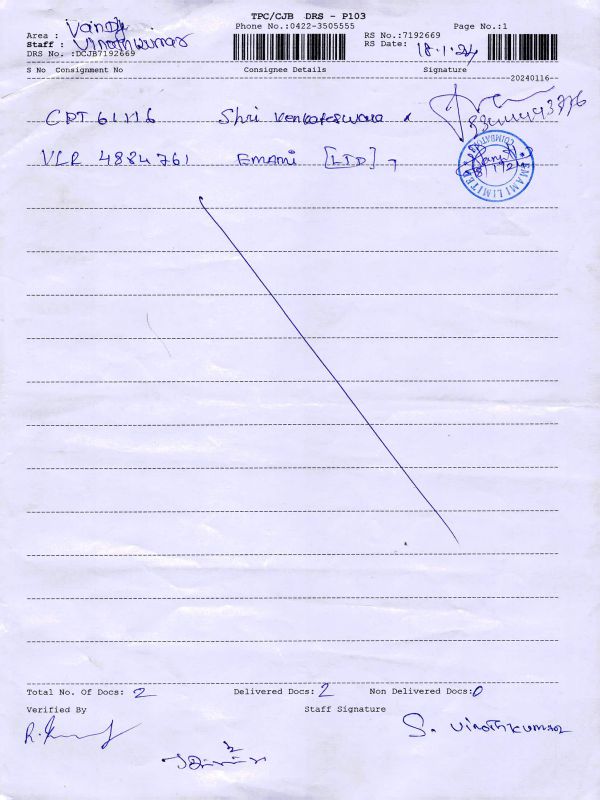 TPC/CJB DRS - P103
Phone No.:0422-3505555 Page No.:1
Area :
Staff : Vinothkumar
DRS No. :DCJB7192669
RS No.:7192669
RS Date: 18.1.24
S No Consignment No Consignee Details Signature
20240116
CPT 61116 Shri Venkateswara
VLR 4884761 Emami [LTD]
EMAMI LIMITED COIMBATORE
Total No. Of Docs: 2 Delivered Docs: 2 Non Delivered Docs:0
Verified By Staff Signature
S. Vinothkumar